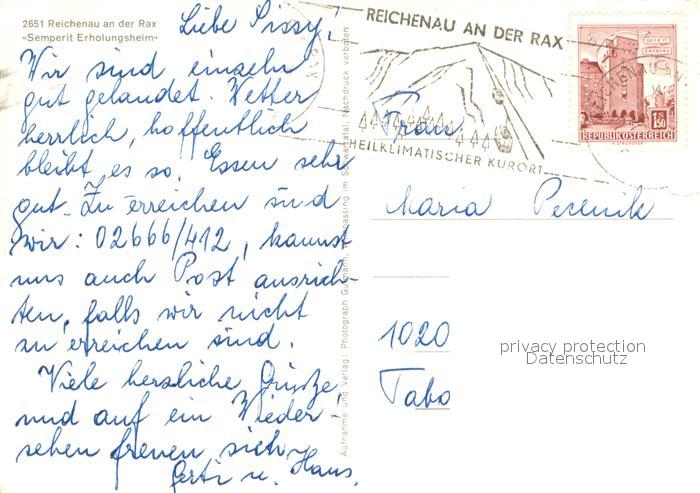 2651 Reichenau an der Rax
»Semperit Erholungsheim«
Liebe Sissy!
Wir sind einzeln
gut gelandet. Wetter
herrlich, hoffentlich
bleibt es so. Essen sehr
gut. Zu erreichen sind
wir: 02666/412, kannst
uns auch Post ausrich-
ten, falls wir nicht
zu erreichen sind.
Viele herzliche Grüsse,
und auf ein Wieder-
sehen freuen sich
Gerti u. Hans.
Aufnahme und Verlag: Photograph im Schwarzatal, Nachdruck verboten
REICHENAU AN DER RAX
HEILKLIMATISCHER KURORT
REPUBLIK ÖSTERREICH
Frau
Maria Pecenik
1020
Tabo
privacy protection
Datenschutz